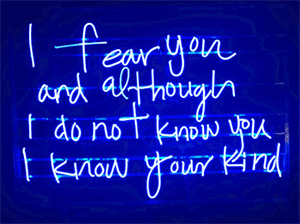 I fear you
and although
I do not know you
I know your kind